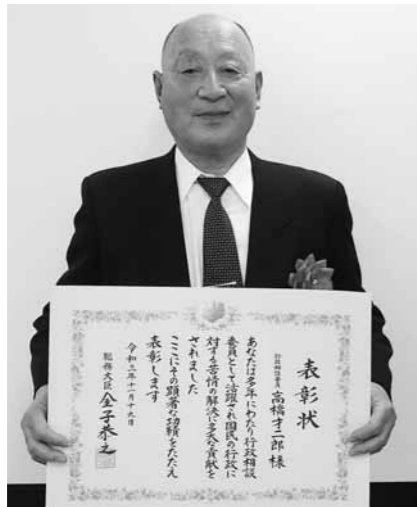 表彰状
行政相談委員 高橋才二郎 様
あなたは多年にわたり行政相談
委員として活躍され国民の行政に
対する苦情の解決に多大な貢献を
されました
ここにその顕著な功績をたたえ
表彰します
令和三年十一月十九日
総務大臣 金子恭之